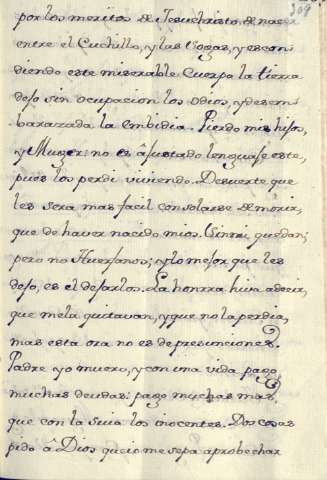 309
por los meritos de Jesuchristo, de nacer
entre el Cuchillo, y las Sogas, y escon
diendo este miserable Cuerpo la tierra
dejo sin ocupacion los odios, y desem
barazada la embidia. Pierdo mis hijos,
y Muger: no es âjustado lenguaje este,
pues los perdi viviendo. Desuerte que
les sera mas facil consolarse de morir,
que de haver nacido mios. quedan;
pero no Huerfanos; y lo mejor que les
dejo, es el dejarlos. La honrra hiva a decir,
que me la quitavan, y que no la perdia;
mas esta ora no es de presunciones.
Padre yo muero, y con una vida pago
muchas deudas: pago muchas mas,
que con la suia los inocentes. Dos cosas
pido â Dios que io me sepa aprobechar